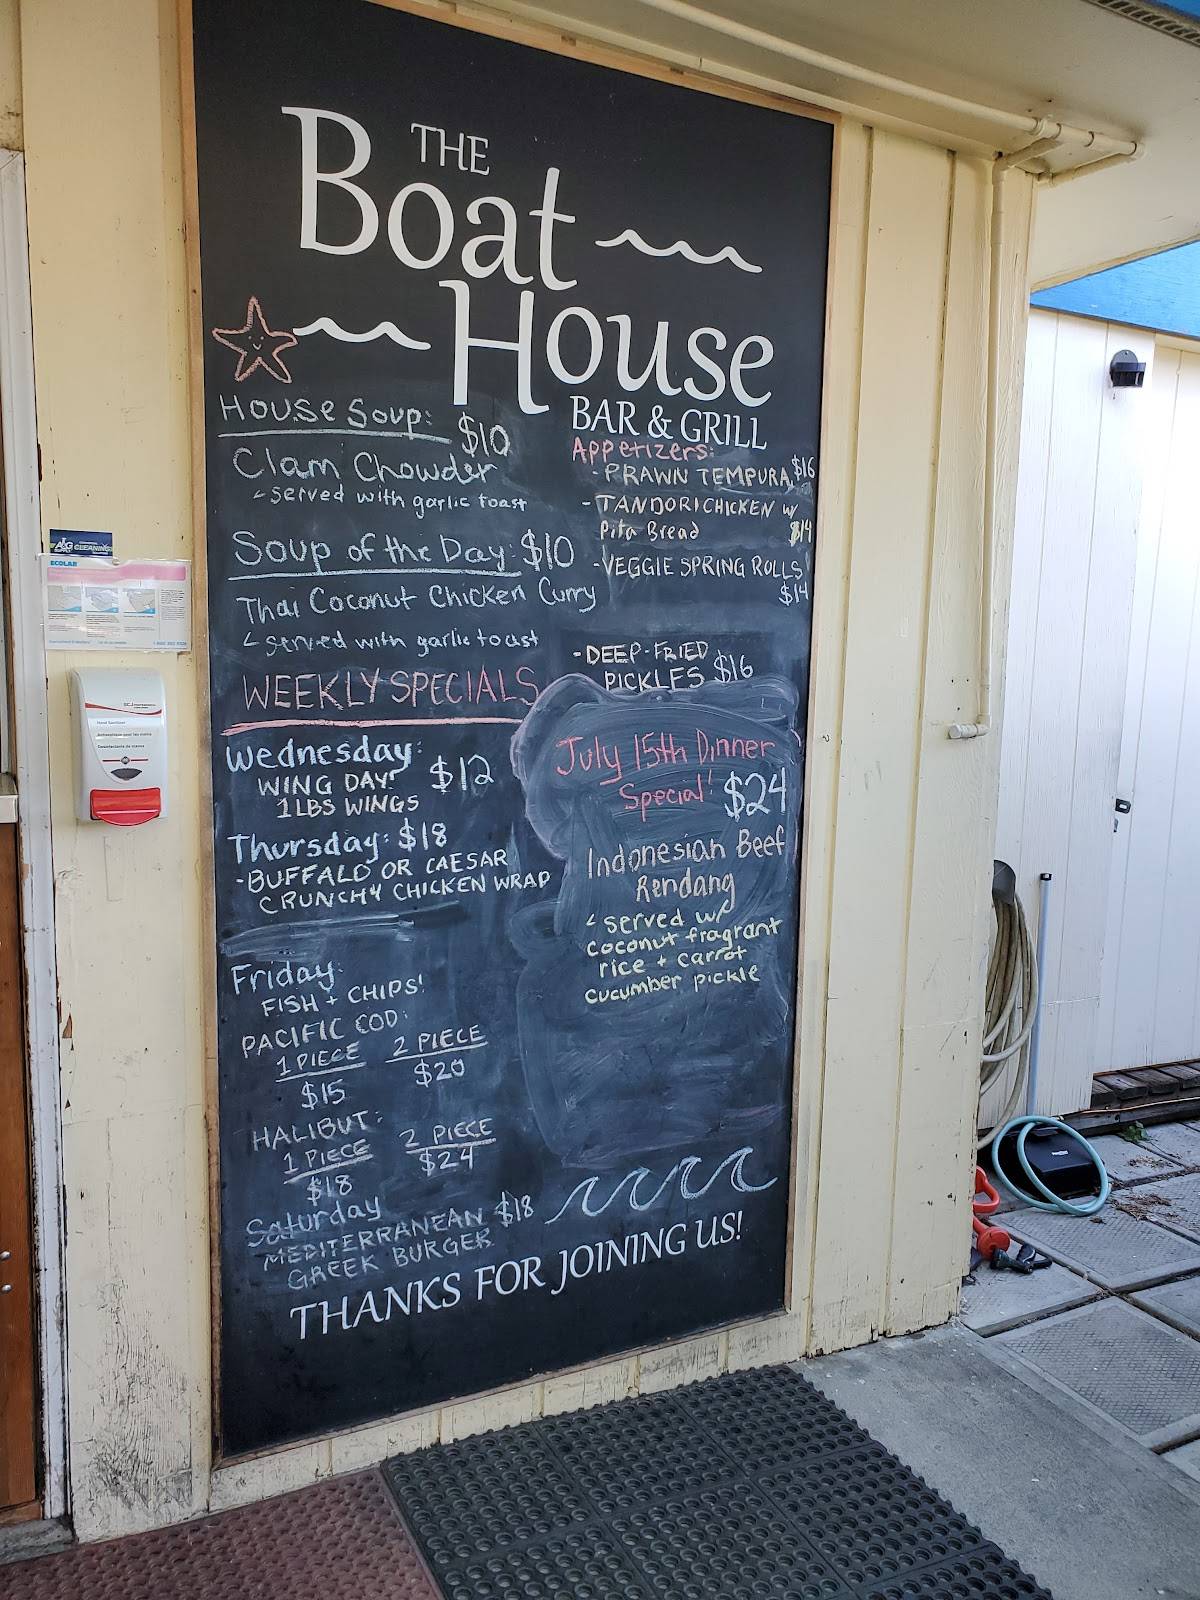 THE
Boat
House
BAR & GRILL
House Soup: $10
Clam Chowder
served with garlic toast
Soup of the Day: $10
Thai Coconut Chicken Curry
served with garlic toast
WEEKLY SPECIALS
Wednesday:
WING DAY! $12
1LBS WINGS
Thursday: $18
-BUFFALO OR CAESAR
CRUNCHY CHICKEN WRAP
Friday:
FISH + CHIPS!
PACIFIC COD:
1 PIECE 2 PIECE
$15 $20
HALIBUT:
1 PIECE 2 PIECE
$18 $24
Saturday
MEDITERRANEAN $18
GREEK BURGER
Appetizers:
-PRAWN TEMPURA $16
-TANDORI CHICKEN w/
Pita Bread $14
-VEGGIE SPRING ROLLS
$14
-DEEP-FRIED
PICKLES $16
July 15th Dinner
Special! $24
Indonesian Beef
Rendang
served w/
coconut fragrant
rice + carrot
cucumber pickle
THANKS FOR JOINING US!
CLEANING
ECOLAB